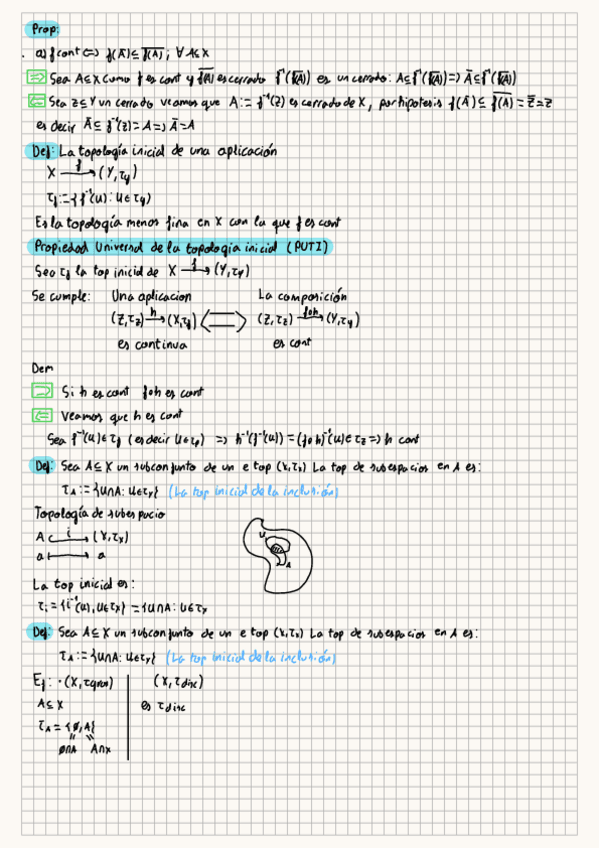 Prop:
a) f cont ⇔ f(Ā) ⊆ \overline{f(A)}; ∀A⊆X
⇒ Sea A⊆X como f es cont y \overline{f(A)} es cerrado f⁻¹(\overline{f(A)}) es un cerrado: A⊆f⁻¹(\overline{f(A)}) ⇒ Ā⊆f⁻¹(\overline{f(A)})
⇐ Sea Z⊆Y un cerrado veamos que A := f⁻¹(Z) es cerrado de X, por hipotesis f(Ā) ⊆ \overline{f(A)} = Z̄ = Z
es decir Ā ⊆ f⁻¹(Z) = A ⇒ Ā = A
Def: La topología inicial de una aplicación
X —f→ (Y, τy)
τf := {f⁻¹(U) : U∈τy}
Es la topología menos fina en X con la que f es cont
Propiedad Universal de la topología inicial (PUTI)
Sea τf la top inicial de X —f→ (Y, τy)
Se cumple: Una aplicacion La composición
(Z, τz) —h→ (X, τf) ⇔ (Z, τz) —foh→ (Y, τy)
es continua es cont
Dem
⇒ Si h es cont foh es cont
⇐ Veamos que h es cont
Sea f⁻¹(U) ∈ τf (es decir U∈τy) ⇒ h⁻¹(f⁻¹(U)) = (foh)⁻¹(U) ∈ τz ⇒ h cont
Def: Sea A⊆X un subconjunto de un e top (X, τx) La top de subespacios en A es:
τA := {U∩A : U∈τx} (La top inicial de la inclusión)
Topología de subespacio
A —i→ (X, τx)
a ⟼ a
U
A
La top inicial es:
τi = {i⁻¹(U), U∈τx} = {U∩A : U∈τx
Def: Sea A⊆X un subconjunto de un e top (X, τx) La top de subespacios en A es:
τA := {U∩A : U∈τx} (La top inicial de la inclusión)
Ej: · (X, τgros) (X, τdisc)
A⊆X es τdisc
τA = {∅, A}
∅∩A A∩X